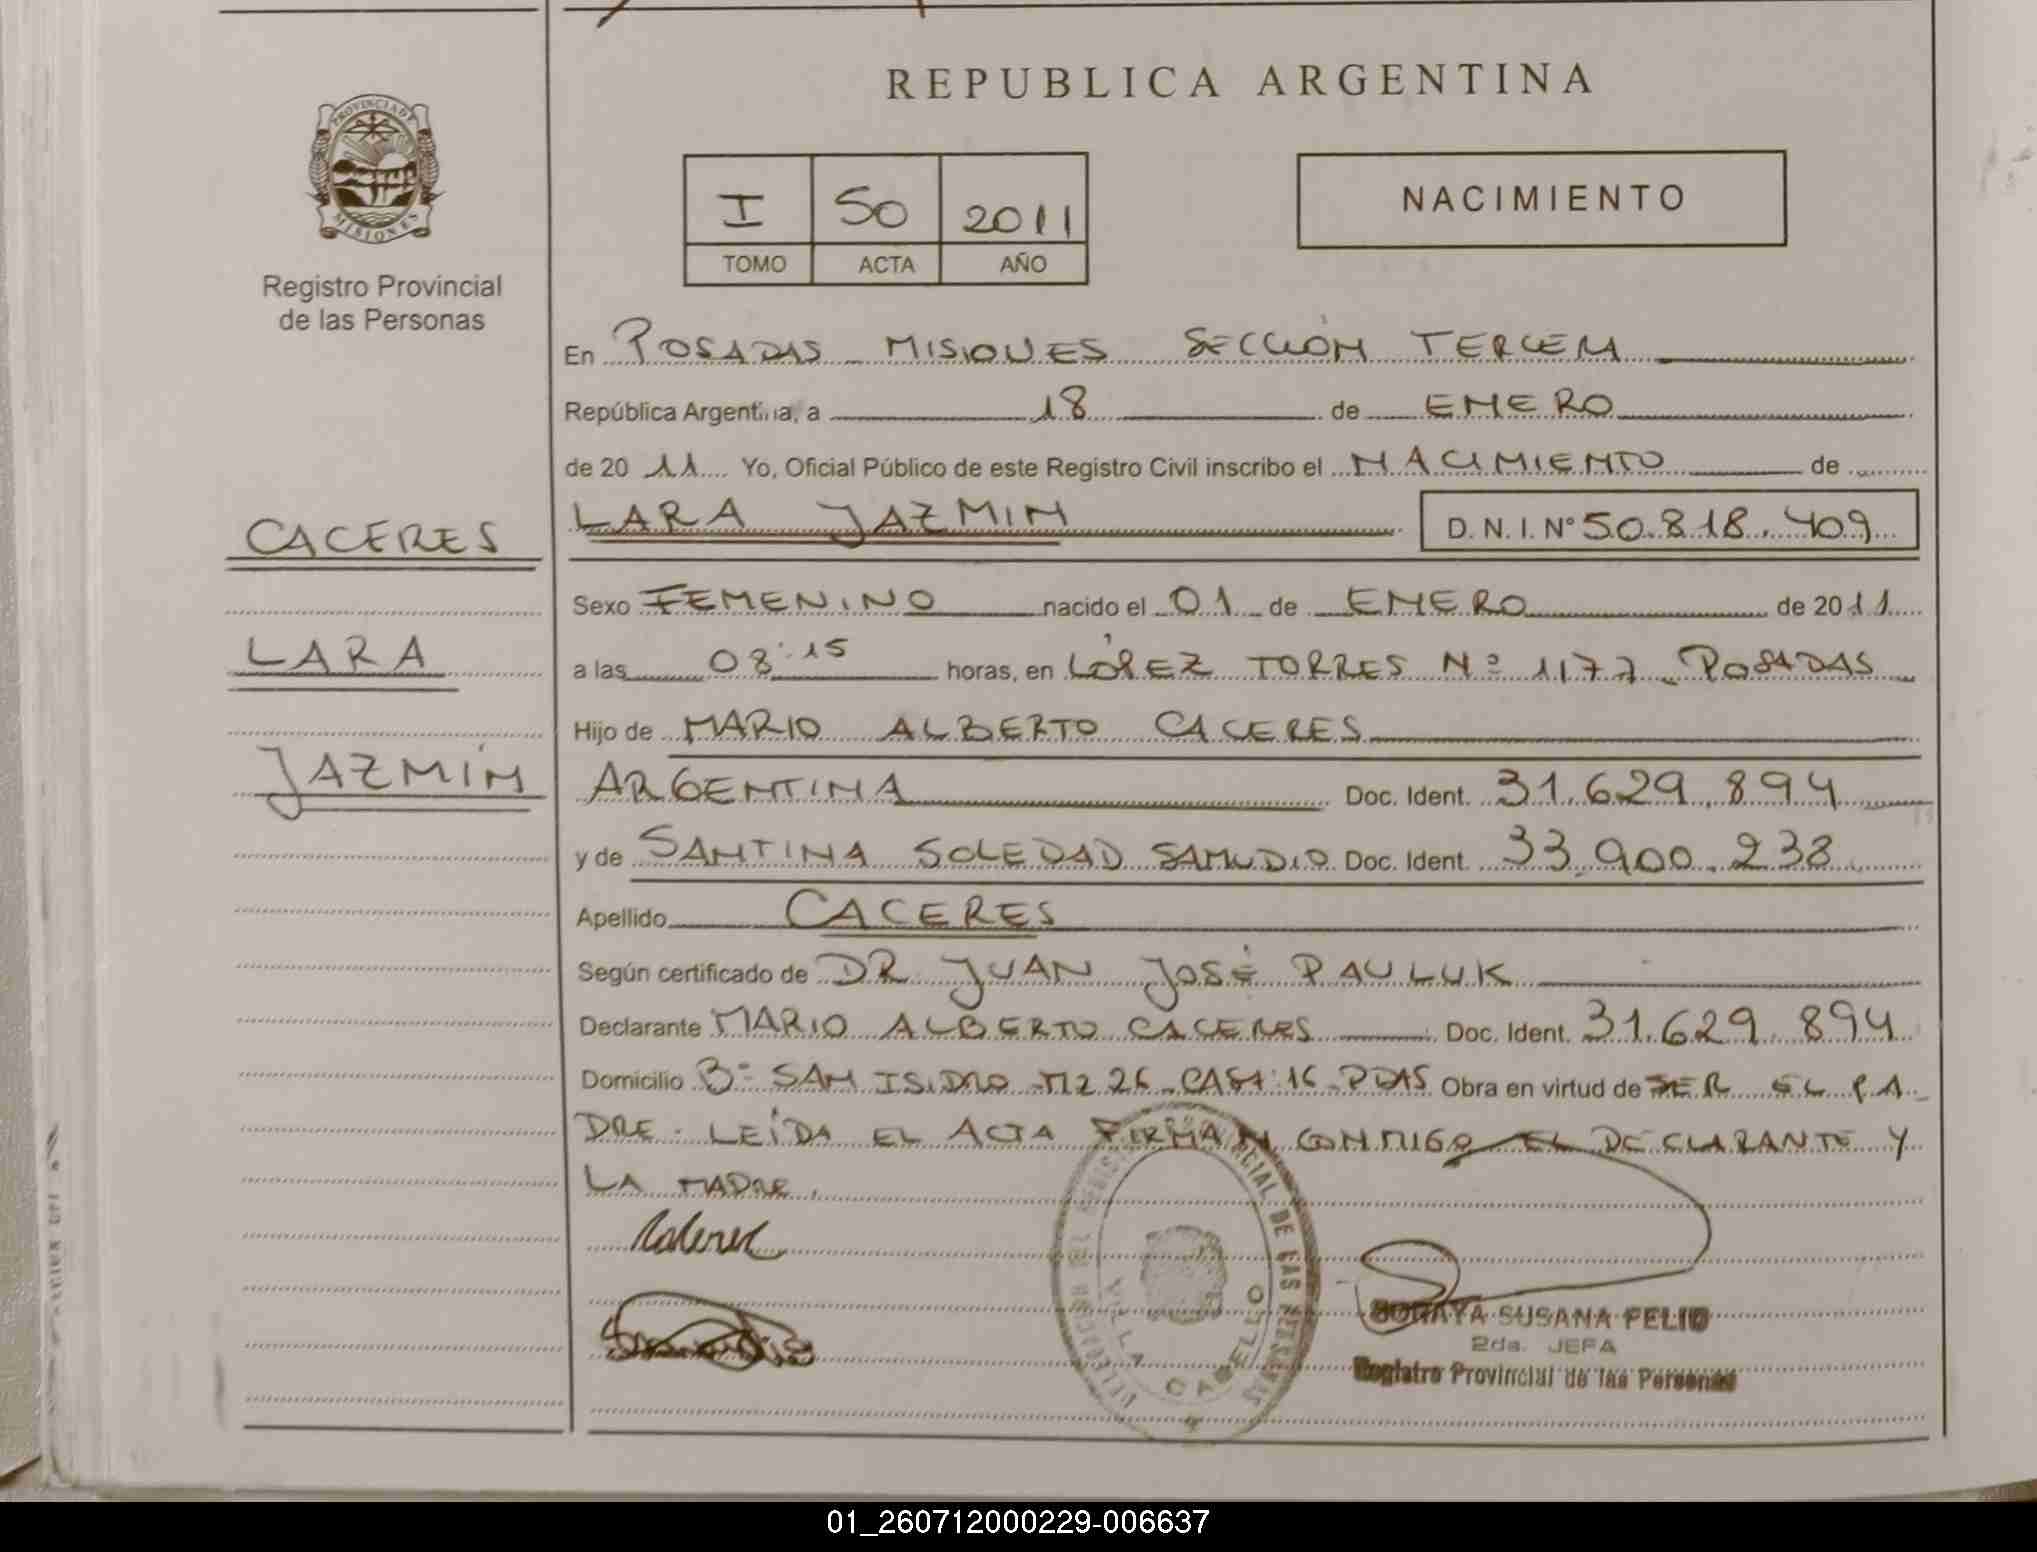 REPUBLICA ARGENTINA
PROVINCIA DE
MISIONES
Registro Provincial
de las Personas
I 50 2011
TOMO ACTA AÑO
NACIMIENTO
En POSADAS - MISIONES SECCIÓN TERCERA
República Argentina, a 18 de ENERO
de 20 11 Yo, Oficial Público de este Registro Civil inscribo el NACIMIENTO de
CACERES
LARA
JAZMÍN
LARA JAZMIN D. N. I. Nº 50.818.409
Sexo FEMENINO nacido el 01 de ENERO de 2011
a las 08:15 horas, en LÓPEZ TORRES Nº 1177 - POSADAS
Hijo de MARIO ALBERTO CACERES
ARGENTINA Doc. Ident. 31.629.894
y de SANTINA SOLEDAD SAMUDIO Doc. Ident. 33.900.238
Apellido CACERES
Según certificado de DR JUAN JOSÉ PAULUK
Declarante MARIO ALBERTO CACERES Doc. Ident. 31.629.894
Domicilio Bº SAN ISIDRO MZ 26 - CASA: 16 - PDAS Obra en virtud de SER EL PA-
DRE - LEÍDA EL ACTA FIRMAN CONMIGO EL DECLARANTE Y
LA MADRE.
VILLA CABELLO
SORAYA SUSANA FELIP
2da. JEFA
Registro Provincial de las Personas
01_260712000229-006637